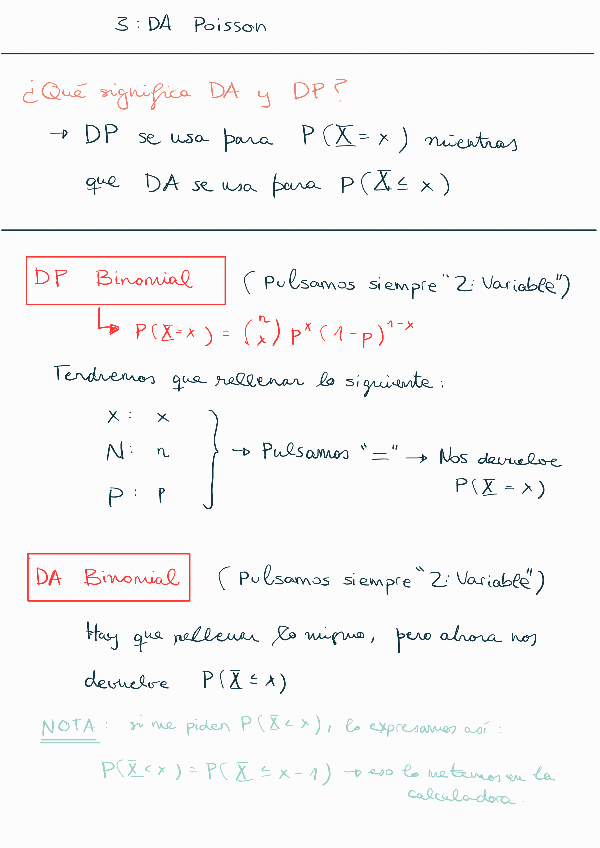 3: DA Poisson
¿Qué significa DA y DP?
→ DP se usa para P(X = x) mientras
que DA se usa para P(X ≤ x)
DP Binomial (Pulsamos siempre "2: Variable")
↳ P(X=x) = (n x) p^x (1-p)^1-x
Tendremos que rellenar lo siguiente:
x: x
N: n → Pulsamos "=" → Nos devuelve
P: p P(X = x)
DA Binomial (Pulsamos siempre "2: Variable")
Hay que rellenar lo mismo, pero ahora nos
devuelve P(X ≤ x)
NOTA: si me piden P(X < x), lo expresamos así:
P(X < x) = P(X ≤ x - 1) → eso lo metemos en la
calculadora.